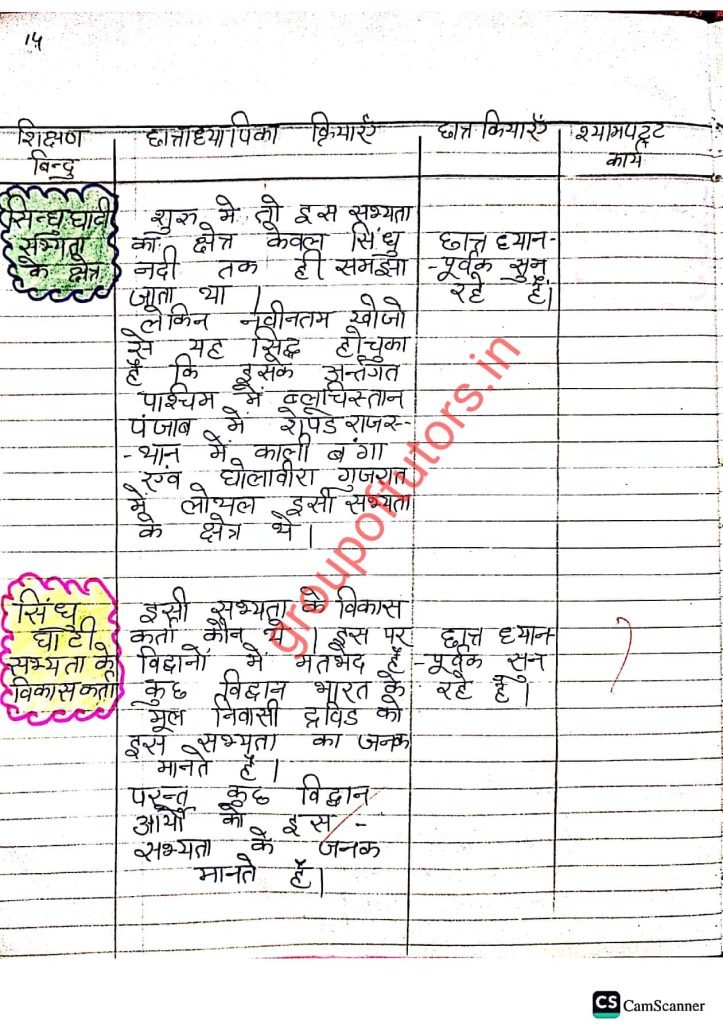 14
शिक्षण बिन्दु
छात्राध्यापिका क्रियाएँ
छात्र क्रियाएँ
श्यामपट्ट कार्य
सिन्धु घाटी
सभ्यता
के क्षेत्र
शुरु में तो इस सभ्यता
का क्षेत्र केवल सिंधु
नदी तक ही समझा
जाता था।
लेकिन नवीनतम खोजो
से यह सिद्ध होचुका
है कि इसके अर्न्तगत
पाश्चिम में ब्लूचिस्तान
पंजाब में रोपड राजस-
-थान में काली बंगा
एंव धोलावीरा गुजरात
में लोथल इसी सभ्यता
के क्षेत्र थे।
छात्र ध्यान-
-पूर्वक सुन
रहे हैं।
सिंधु
घाटी
सभ्यता के
विकासकर्ता
इसी सभ्यता के विकास
कर्ता कौन थे। इस पर
विद्वानों में मतभेद है
कुछ विद्वान भारत के
मूल निवासी द्रविड को
इस सभ्यता का जनक
मानते हैं।
परन्तु कुछ विद्वान
आर्यो को इस -
सभ्यता के जनक
मानते हैं।
छात्र ध्यान
-पूर्वक सुन
रहे हैं।
groupoftutors.in
CS CamScanner